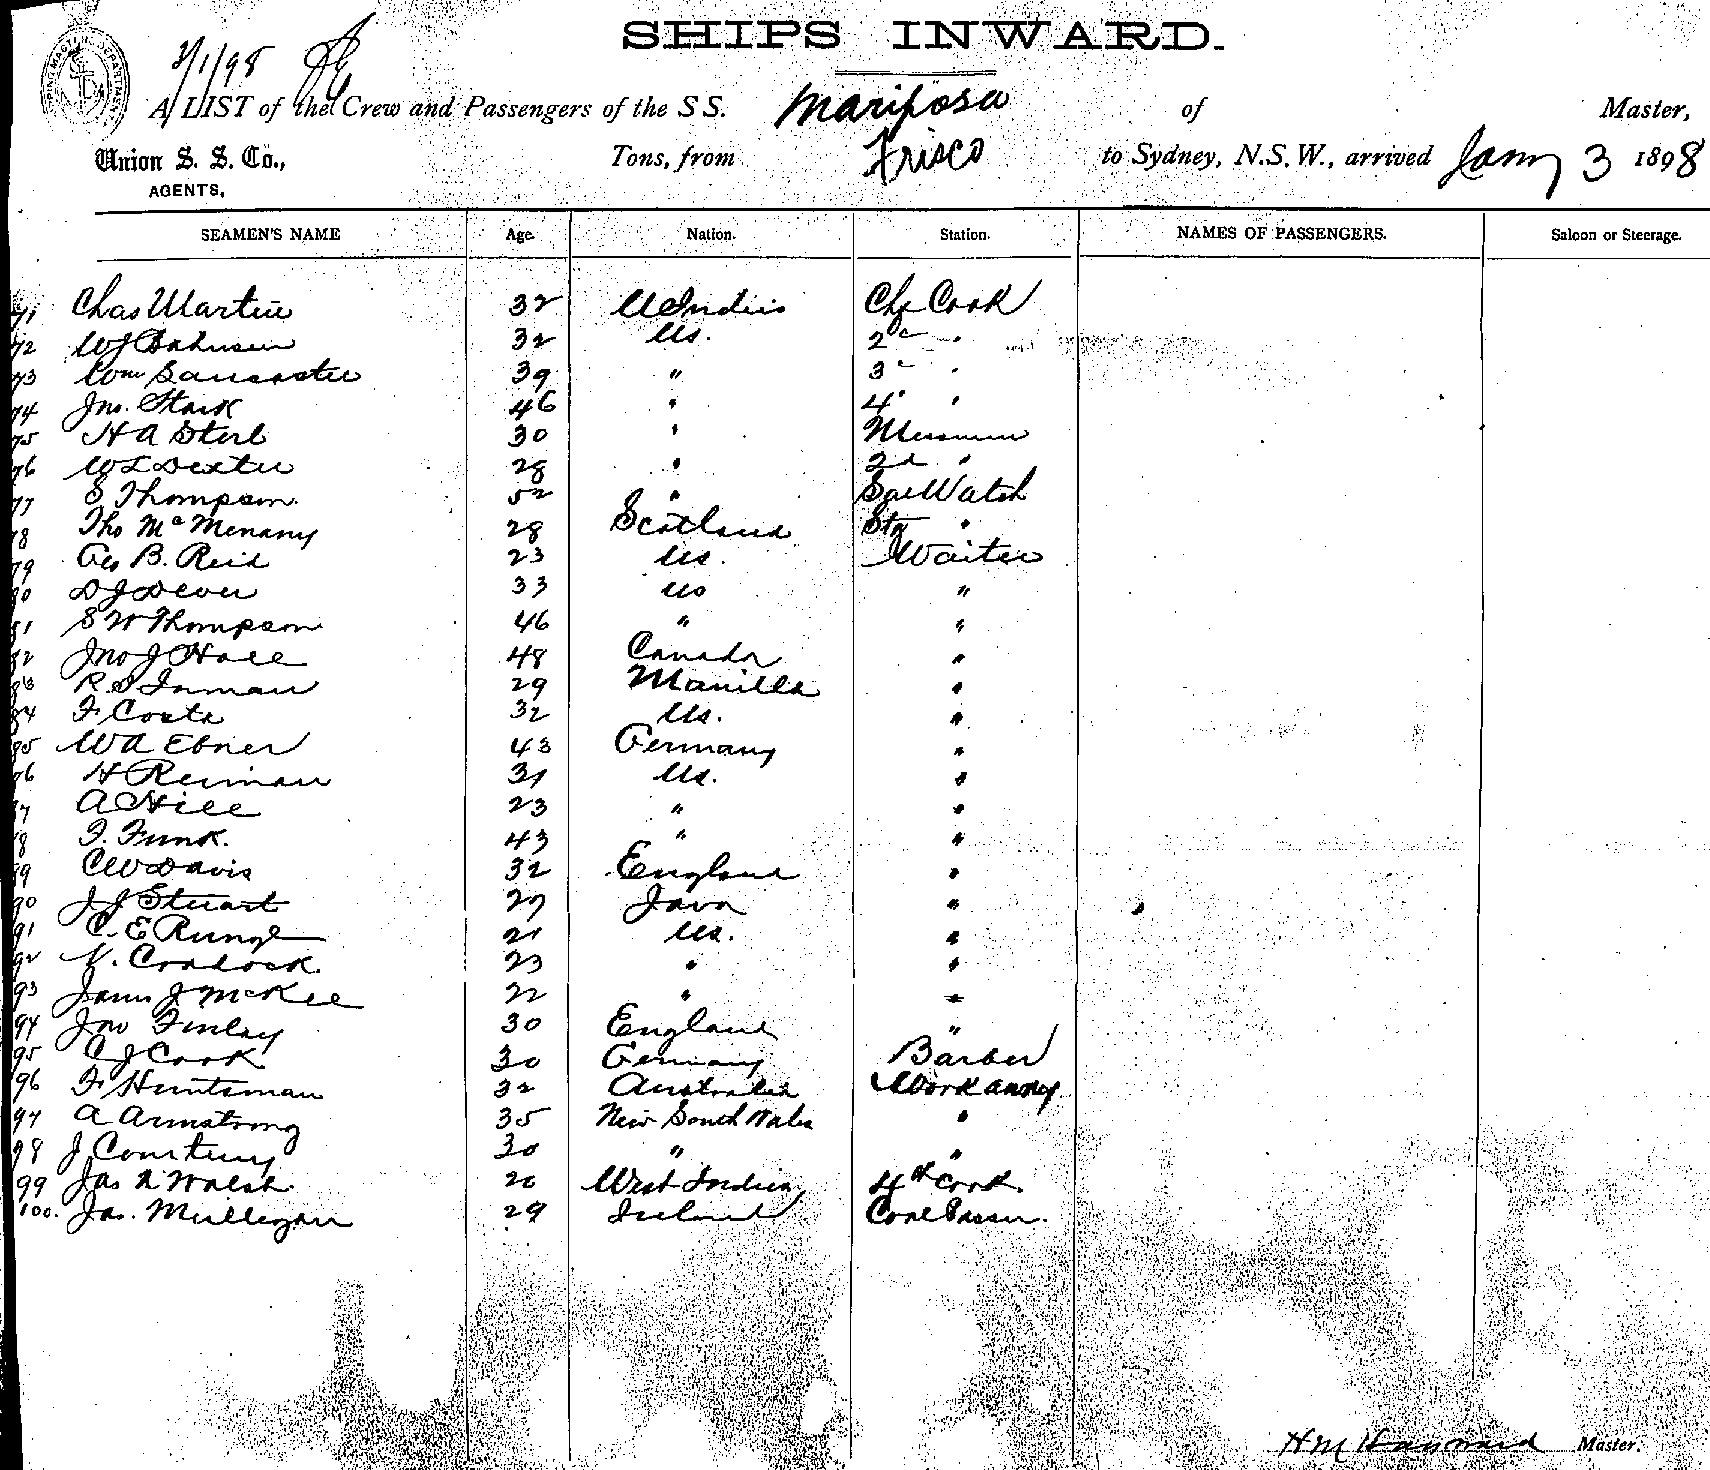 SHIPS INWARD.
3/1/98
A LIST of the Crew and Passengers of the S S. Mariposa of Master,
Union S. S. Co., Tons, from Frisco to Sydney, N.S.W., arrived Jany 3 1898
AGENTS,
SEAMEN'S NAME Age. Nation. Station. NAMES OF PASSENGERS. Saloon or Steerage.
71 Chas Martin 32 W Indies Chf Cook
72 32 US. 2d "
73 Wm Lancaster 39 " 3d "
74 Jno. Stark 46 " 4 "
75 H A Sterl 30 " Messman
76 W L Dexter 28 " 2d "
77 S Thompson 52 " Watch
78 Tho McMenamy 28 Scotland Stg "
79 Geo B. Reid 23 US. Waiter
80 D J Dever 33 US "
81 S W Thompson 46 " "
82 Jno J Hall 48 Canada "
83 R S Inman 29 Manilla "
84 F Costa 32 US. "
85 W A Ebner 43 Germany "
86 H Reiman 31 US. "
87 A Hill 23 " "
88 F. Funk. 43 " "
89 C W Davis 32 England "
90 J J Stuart 27 Java "
91 C. E Runge 21 US. "
92 N. Cradock. 23 " "
93 James J McKee 22 " "
94 Jno Finlay 30 England "
95 C J Cook 30 Germany Barber
96 F Huntsman 32 Australia Workaway
97 A Armstrong 35 New South Wales "
98 J Courtney 30 " "
99 Jas A Walsh 26 West Indies 4th Cook.
100. Jas. Mulligan 29 Ireland Coal Passer.
H M Hayward Master.